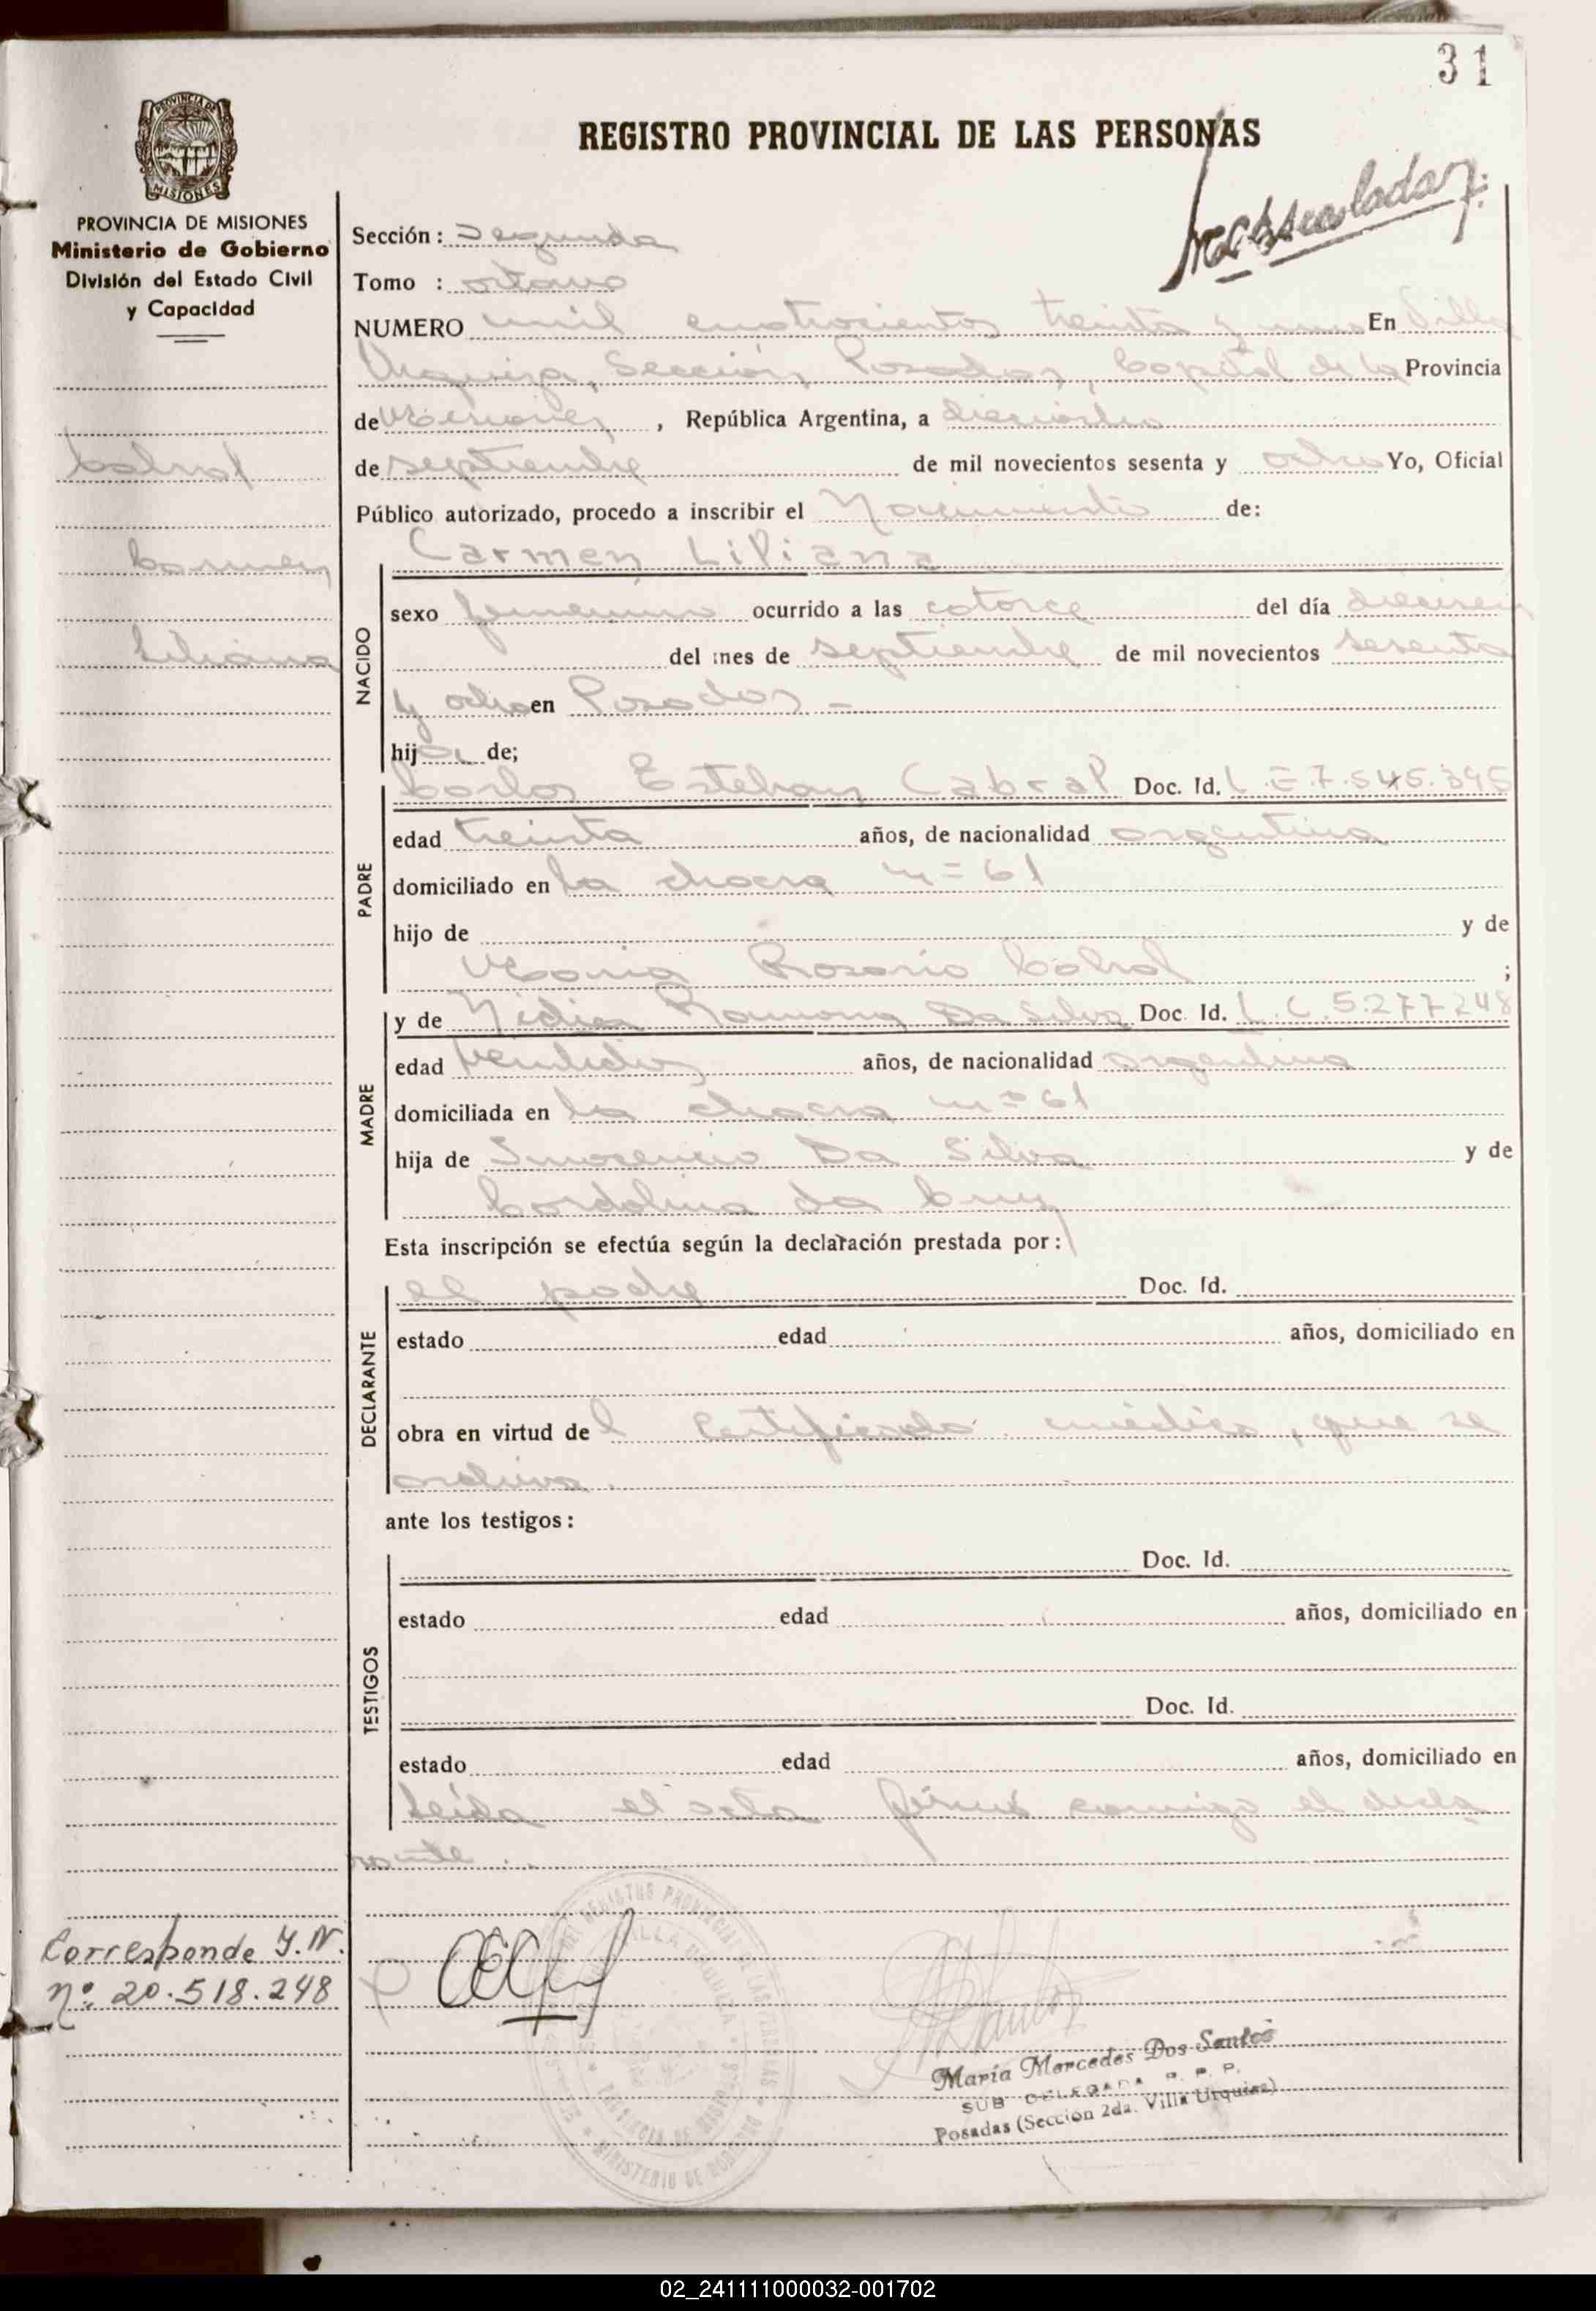 31
REGISTRO PROVINCIAL DE LAS PERSONAS
PROVINCIA DE MISIONES
MISIONES
PROVINCIA DE MISIONES
Ministerio de Gobierno
División del Estado Civil
y Capacidad
Cabral
Carmen
Liliana
Sección: Segunda
Tomo : octavo
NUMERO mil cuatrocientos treinta y uno En Villa
Urquiza, Sección Posadas, Capital de la Provincia
de Misiones, República Argentina, a dieciocho
de septiembre de mil novecientos sesenta y ocho Yo, Oficial
Público autorizado, procedo a inscribir el Nacimiento de:
Carmen Liliana
NACIDO
sexo femenino ocurrido a las catorce del día dieciseis
del mes de septiembre de mil novecientos sesenta
y ocho en Posadas -
hija de;
PADRE
Carlos Esteban Cabral Doc. Id. L.E 7.545.395
edad treinta años, de nacionalidad argentina
domiciliado en la chacra nº 61
hijo de y de
Maria Rosario Cabral ;
MADRE
y de Nidia Ramona Da Silva Doc. Id. L.C.5.277248
edad veintidos años, de nacionalidad argentina
domiciliada en la chacra nº 61
hija de Inocencio Da Silva y de
da Cruz
Esta inscripción se efectúa según la declaración prestada por:
DECLARANTE
el padre Doc. Id.
estado edad años, domiciliado en
obra en virtud del Certificado médico, que se
archiva.
ante los testigos:
TESTIGOS
Doc. Id.
estado edad años, domiciliado en
Doc. Id.
estado edad años, domiciliado en
Leída el acta firma conmigo el decla
rante.
Corresponde I.N.
nº 20.518.248
María Mercedes Dos Santos
SUB DELEGADA R. P. P.
Posadas (Sección 2da. Villa Urquiza)
02_241111000032-001702